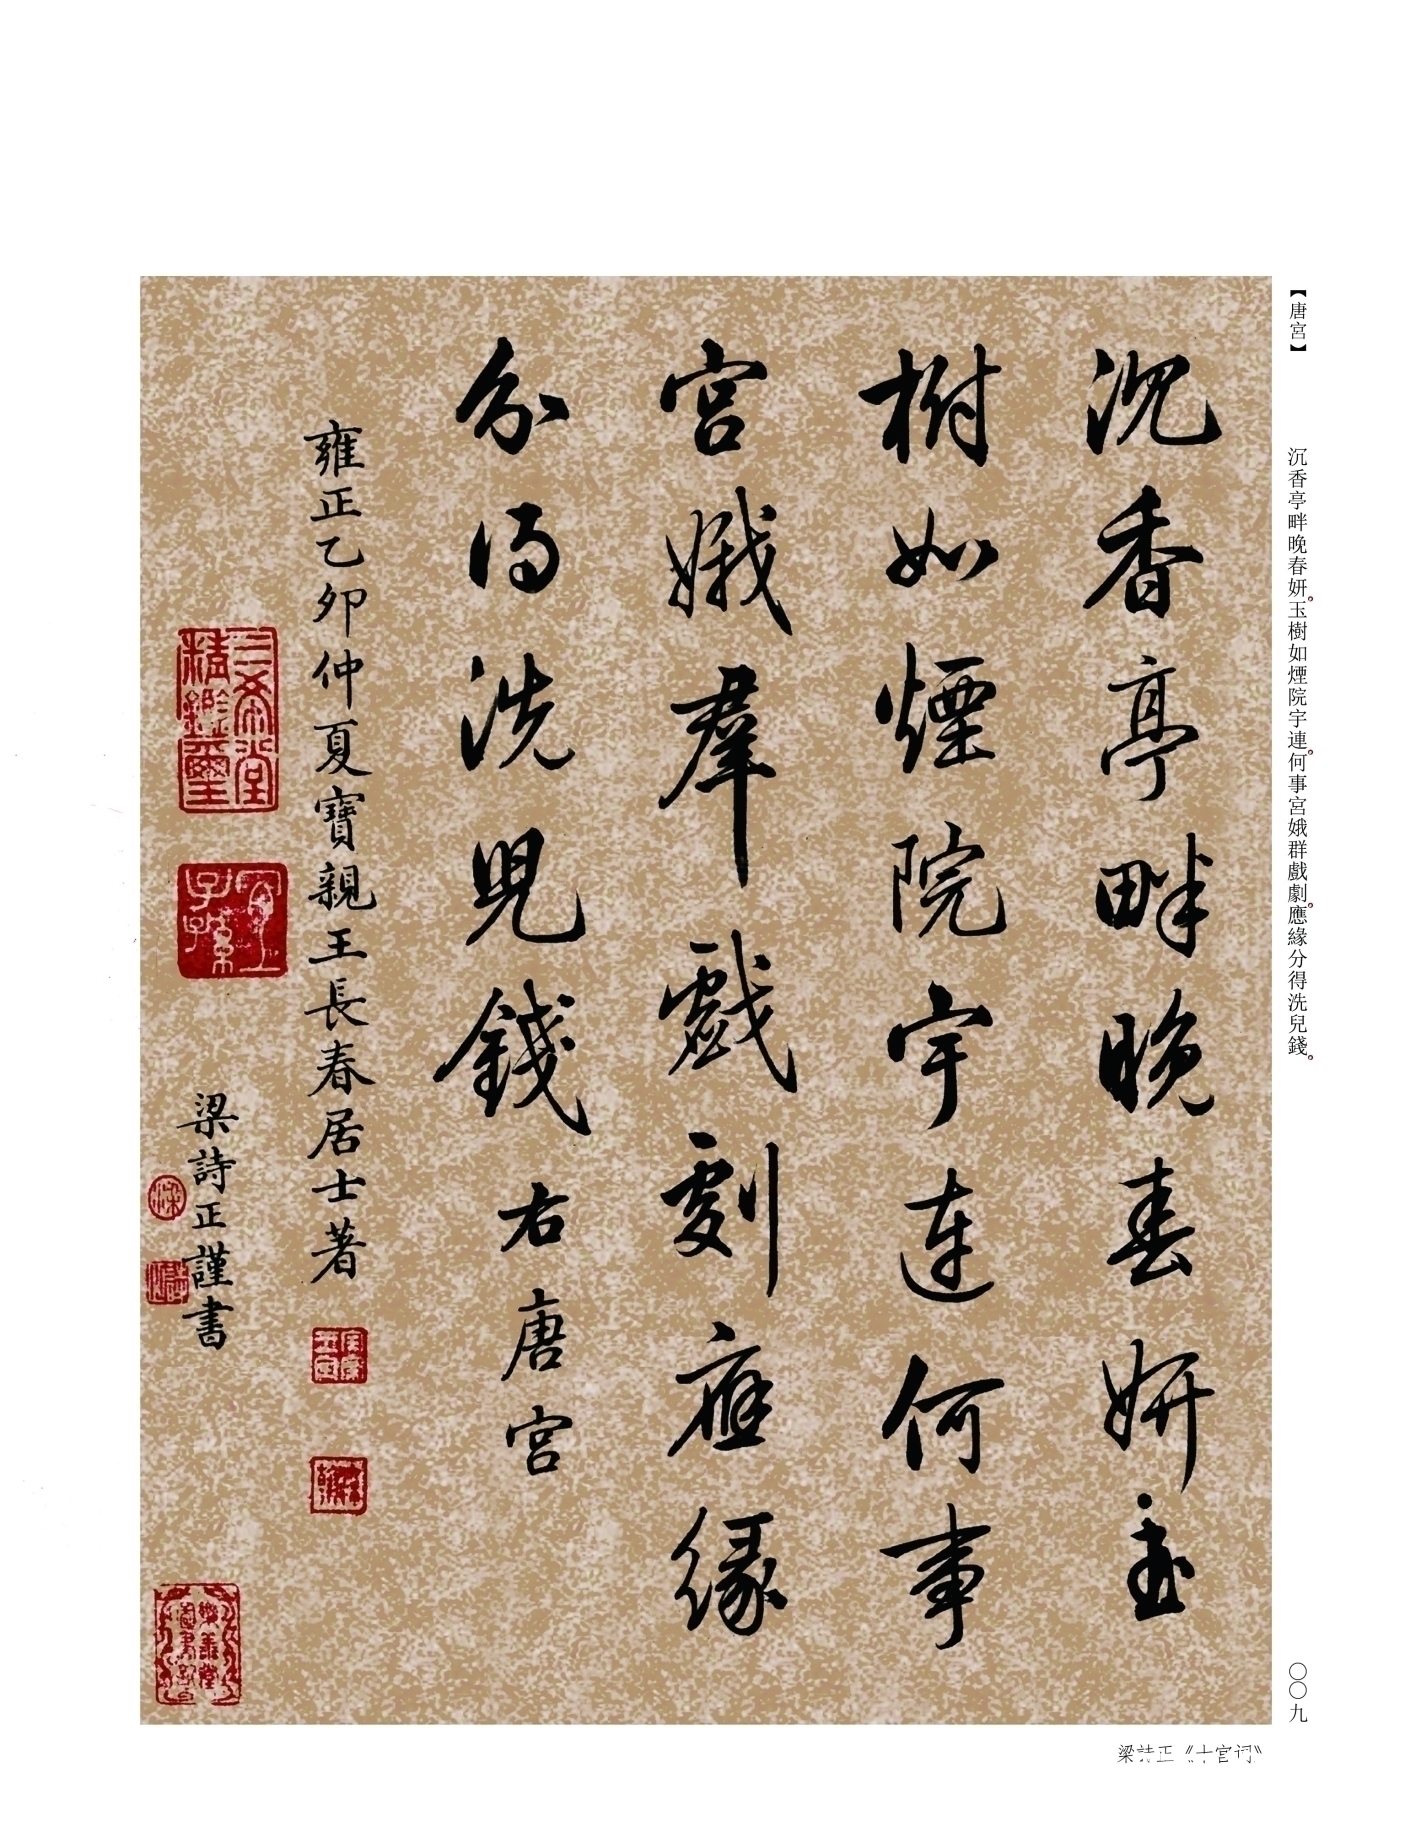 【唐宮】 沉香亭畔晚春妍。玉樹如煙院宇連。何事宮娥群戲劇。應緣分得洗兒錢。
沉香亭畔晚春妍玉
樹如煙院宇連何事
宮娥羣戲劇應緣
分得洗兒錢 右唐宮
雍正乙卯仲夏寶親王長春居士著
梁詩正謹書
三希堂精鑑璽
宜子孫
〇〇九
梁詩正《十宮詞》